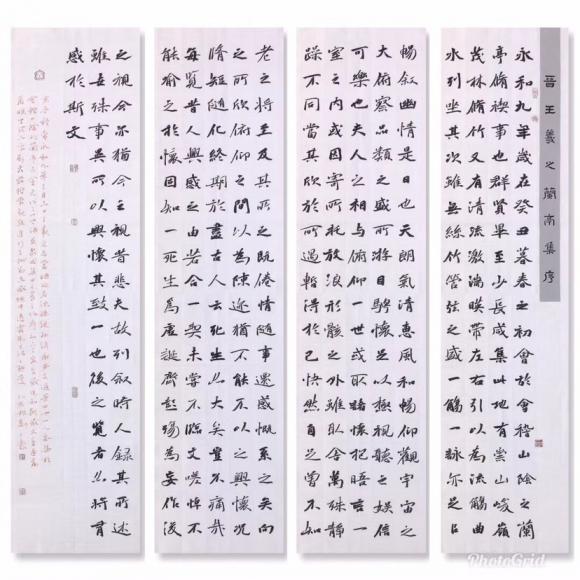 晉王羲之蘭亭集序
永和九年歲在癸丑暮春之初會於會稽山陰之蘭
亭脩禊事也群賢畢至少長咸集此地有崇山峻嶺
茂林脩竹又有清流激湍暎帶左右引以為流觴曲
水列坐其次雖無絲竹管弦之盛一觴一詠亦足以
暢敘幽情是日也天朗氣清惠風和暢仰觀宇宙之
大俯察品類之盛所以遊目騁懷足以極視聽之娛信
可樂也夫人之相與俯仰一世或取諸懷抱悟言一
室之內或因寄所託放浪形骸之外雖趣舍萬殊靜
躁不同當其欣於所遇暫得於己快然自足曾不知
老之將至及其所之既倦情隨事遷感慨係之矣向
之所欣俯仰之間以為陳迹猶不能不以之興懷況
脩短隨化終期於盡古人云死生亦大矣豈不痛哉
每覽昔人興感之由若合一契未嘗不臨文嗟悼不
能喻之於懷固知一死生為虛誕齊彭殤為妄作後
之視今亦猶今之視昔悲夫故列敘時人錄其所述
雖世殊事異所以興懷其致一也後之覽者亦將有
感於斯文
PhotoGrid